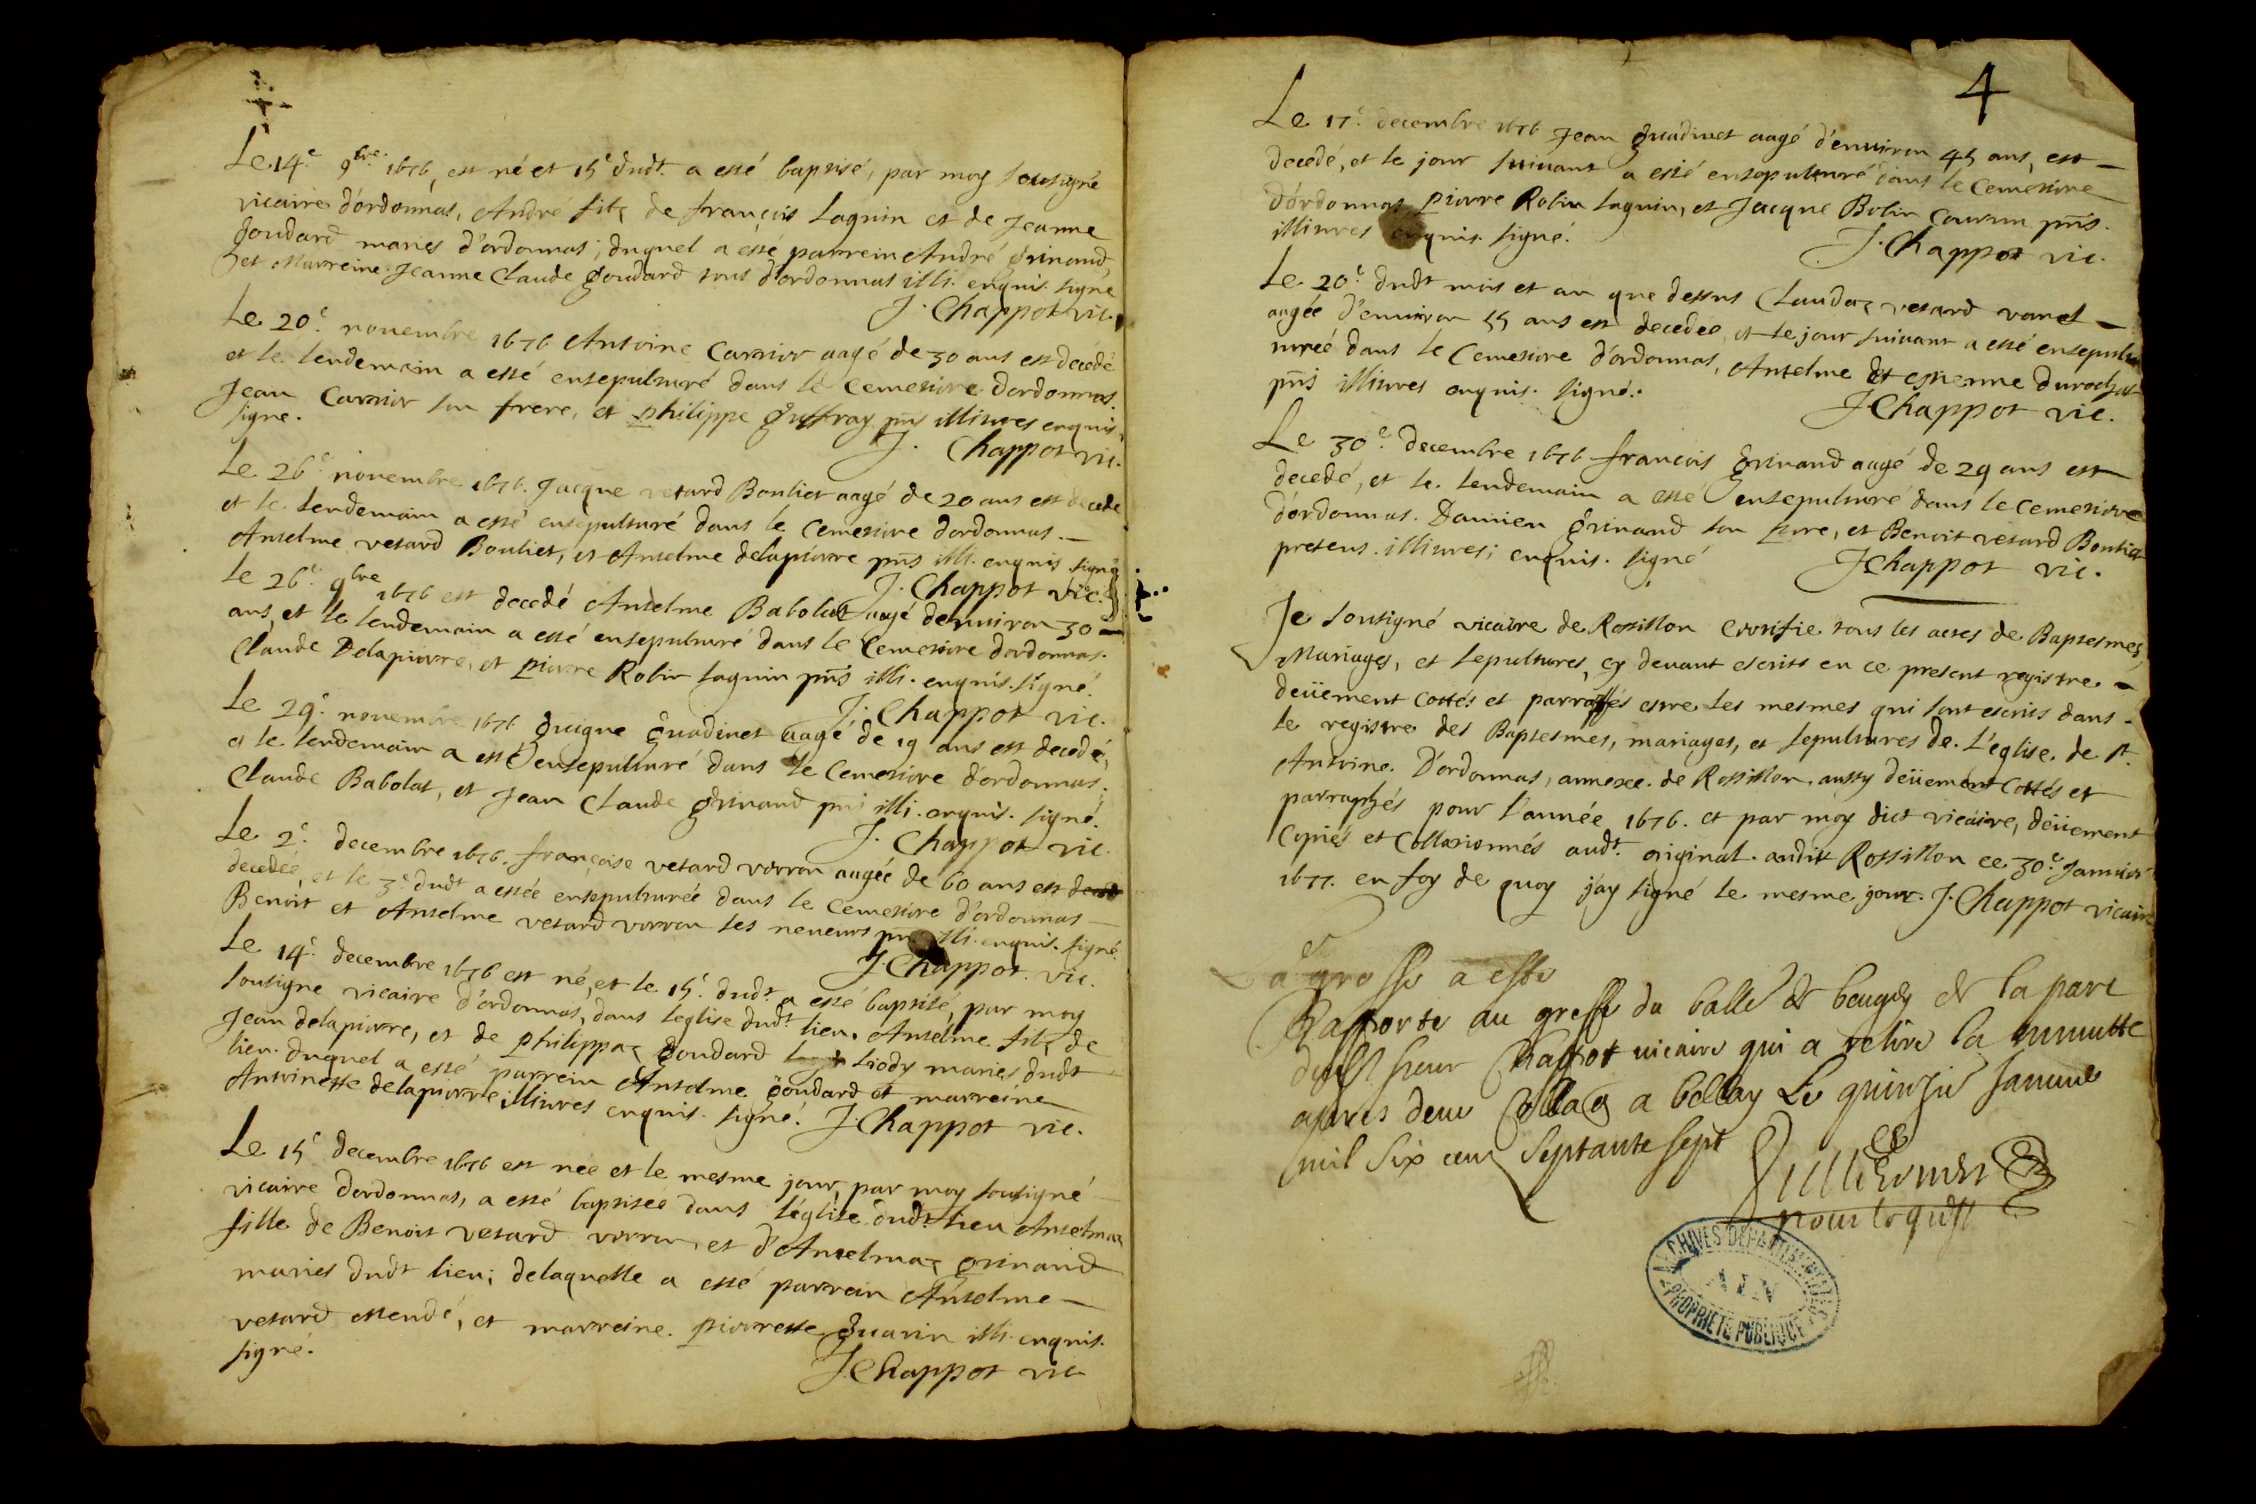 Le 14e 9bre 1676, est né et 15e dudt a esté baptisé, par moy sousigné
vicaire d'ordonnas, André filz de françois Lagnin et de Jeanne
goudard mariés d'ordonnas; duquel a esté parrein André grinand,
et Marreine Jeanne Claude goudard tous d'ordonnas illi. enquis. signé
J. Chappot vic.
Le 20e. novembre 1676 Antoine Carrier aagé de 30 ans est décédé
et le lendemain a esté ensepulturé dans le Cemetiere d'ordonnas.
Jean Carrier son frere, et philippe guffray pns illitires enquis.
signé.
J. Chappot vic.
Le 26e novembre 1676. Jacque vetard Bouliet aagé de 20 ans est decede
et le lendemain a esté ensepulturé dans le Cemetiere d'ordonnas.
Antelme vetard Bouliet, et Antelme delapierre pns illi. enquis signé
J. Chappot vic.
Le 26e. 9bre 1676 est decedé Antelme Babolat aagé d'environ 30
ans, et le lendemain a esté ensepulturé dans le Cemetiere d'ordonnas.
Claude Delapierre, et pierre Robin Lagnin pns illi. enquis. signé.
J. Chappot vic.
Le 29e. novembre 1676 guigue guadinet aagé de 19 ans est decedé,
et le lendemain a esté ensepulturé dans le Cemetiere d'ordonnas.
Claude Babolat, et Jean Claude grinand pns illi. enquis. signé.
J. Chappot vic.
Le 2e. decembre 1676. françoise vetard verron aagée de 60 ans est
decedée, et le 3e dudt a estée ensepulturée dans le Cemetiere d'ordonnas
Benoit et Antelme vetard verron ses neveurs illi. enquis. signé.
J. Chappot. vic.
Le 14e. decembre 1676 est né, et le 15e. dudt a esté baptisé, par moy
sousigné vicaire d'ordonnas, dans leglise dudt lieu. Antelme filz de
Jean delapierre, et de philippaz goudard Liody mariés dudt
lieu. duquel a esté parrein Antelme goudard et marreine
Antoinette delapierre illitires enquis. signé. J. Chappot vic.
Le 15e decembre 1676 est née et le mesme jour, par moy sousigné
vicaire d'ordonnas, a esté baptisée dans l'église dudt lieu Antelmaz
fille de Benoit vetard verron, et d'Antelmaz grinand
mariés dudt lieu; delaquelle a esté parrein Antelme
vetard, et marreine. pierrette guarin illi. enquis.
signé.
J. Chappot vic
4
Le 17e. decembre 1676 Jean guadinet aagé d'environ 45 ans, est
decedé, et le jour suivant a esté ensepulturé dans le Cemetiere
d'ordonnas pierre Robin Lagnin, et Jacque Bolin pns.
illitires enquis. signé.
J. Chappot vic.
Le 20e. dudt mois et an que dessus Claudaz vetard
aagée d'environ 55 ans est decedée, et le jour suivant a esté ensepul
turée dans le Cemetiere d'ordonnas, Antelme et estienne durochat
pns illitires enquis. signé.
J. Chappot vic.
Le 30e. decembre 1676 françois grinand aagé de 29 ans est
decedé, et le lendemain a esté ensepulturé dans le Cemetiere
d'ordonnas. Damien grinand son pere, et Benoit vetard Bouliet
presens. illitires; enquis. signé
J. Chappot vic.
Je sousigné vicaire de Rossillon Certifie tous les actes de Baptesmes,
Mariages, et sepultures, cy devant escrits en ce present registre.
deüement Cottés et parraffés estre les mesmes qui sont escrits dans
le registre des Baptesmes, mariages, et sepultures de. L'eglise. de st.
Antoine. D'ordonnas, annexe. de Rossillon. aussy deüement Cottés et
parraphés pour l'année 1676. et par moy dict vicaire, deüement
Copiés et Collationnés audt. original. audit Rossillon ce 30e. Janvier
1677. en foy de quoy j'ay signé le mesme jour. J. Chappot vicaire
La grosse a esté
Rapportée au greffe du de beugey de la part
dudt sieur Chappot vicaire qui a retiré la minutte
apres deue a bellay Le quinzie Janvier
mil six cens septante sept
ARCHIVES DÉPARTEMENTALES
AIN
PROPRIÉTÉ PUBLIQUE